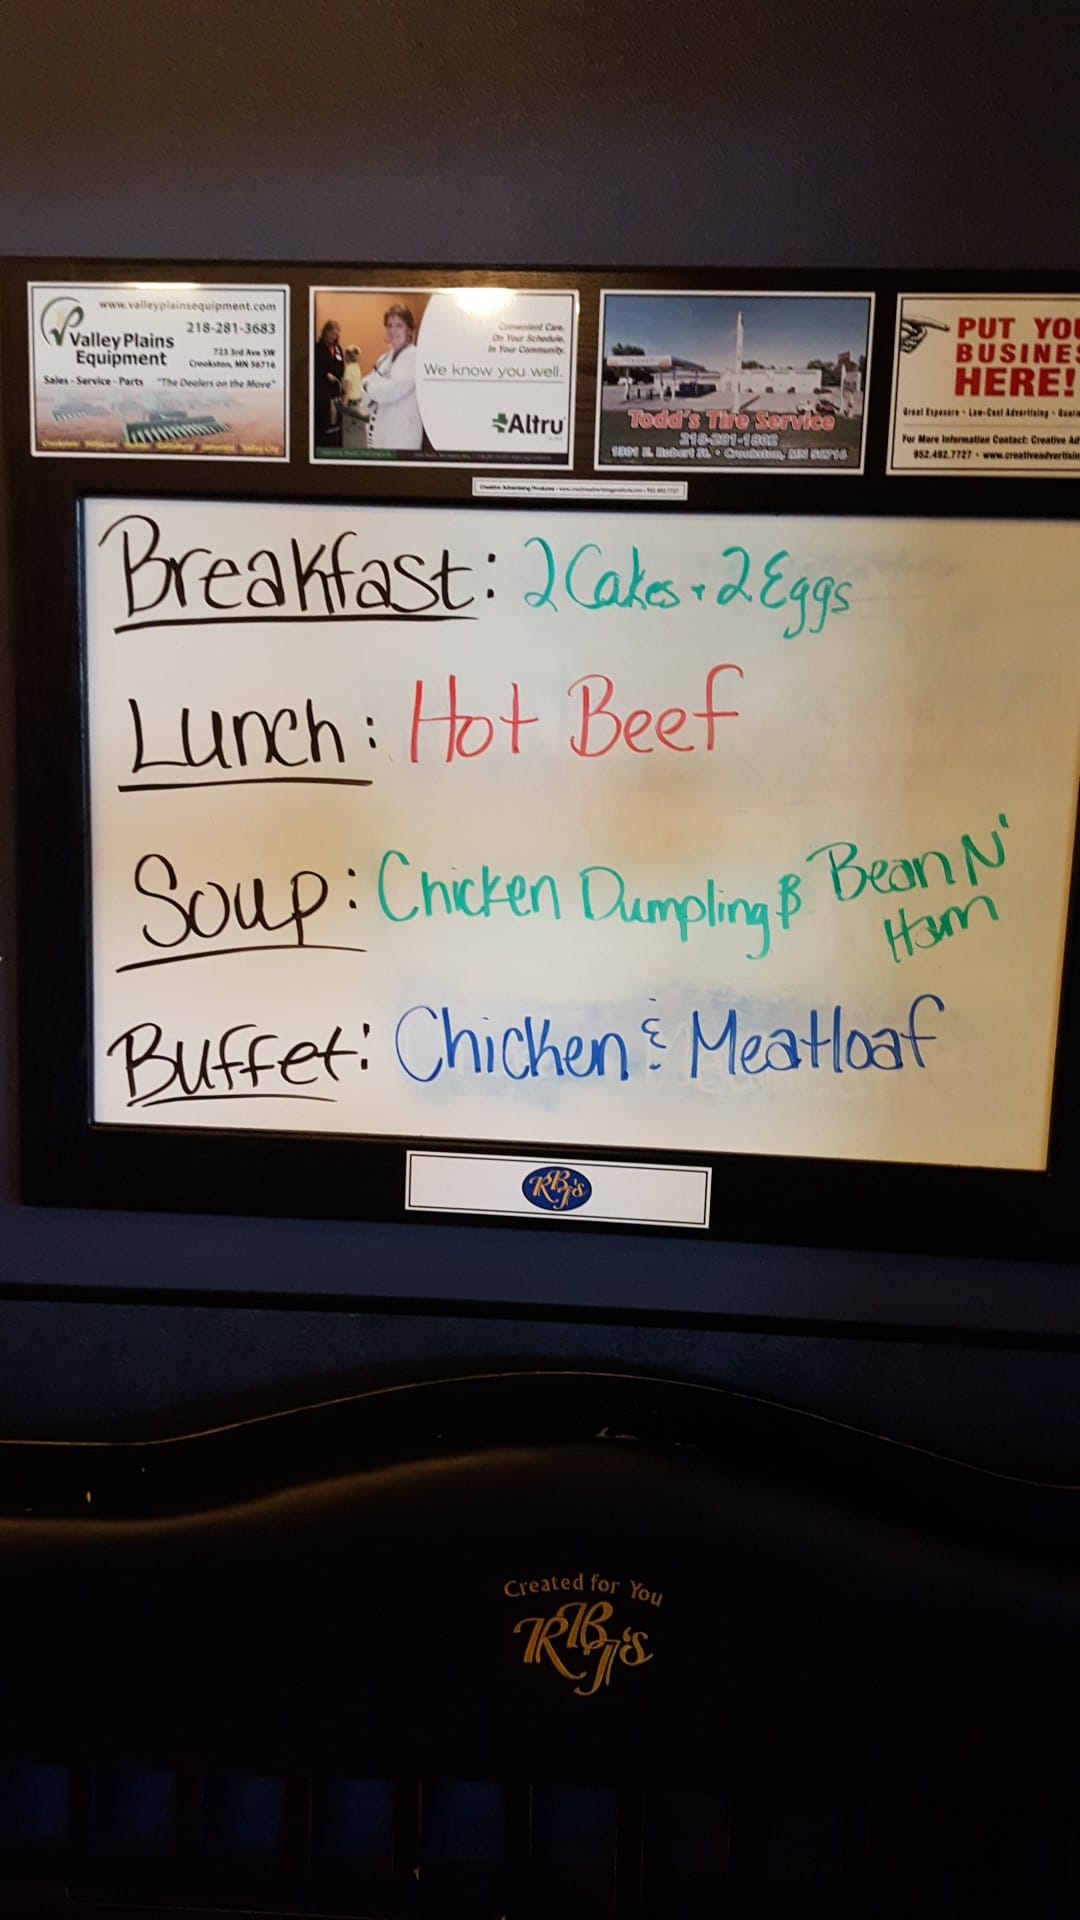 www.valleyplainsequipment.com
218-281-3683
Valley Plains
Equipment
723 3rd Ave SW
Crookston, MN 56716
Sales - Service - Parts "The Dealers on the Move"
Convenient Care.
On Your Schedule.
In Your Community.
We know you well.
Altru
Todd's Tire Service
218-281-1802
1301 E. Robert St. • Crookston, MN 56716
PUT YOU
BUSINES
HERE!
Great Exposure • Low-Cost Advertising • Guara
For More Information Contact: Creative Ad
952.492.7727 • www.creativeadvertisin
Breakfast: 2 Cakes + 2 Eggs
Lunch: Hot Beef
Soup: Chicken Dumpling & Bean N'
Ham
Buffet: Chicken & Meatloaf
RBJ's
Created for You
RBJ's